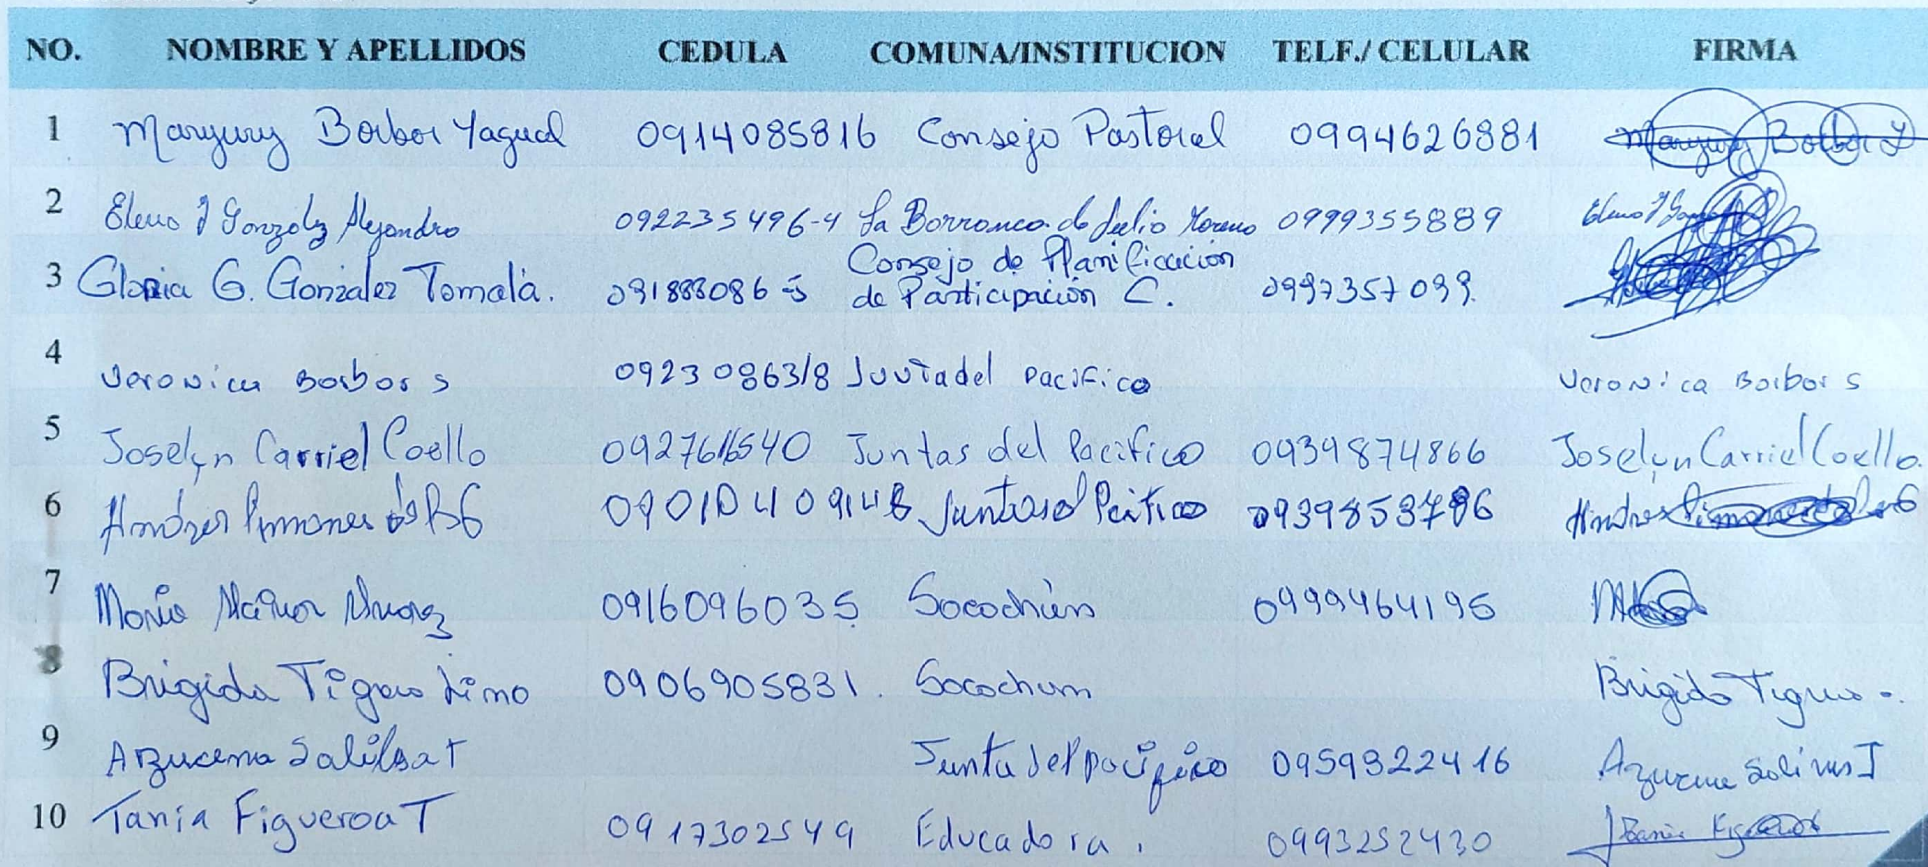 NO. NOMBRE Y APELLIDOS CEDULA COMUNA/INSTITUCION TELF./ CELULAR FIRMA
1 Maryury Borbor Yagual 0914085816 Consejo Pastoral 0994626881 Maryury Borbor Y
2 Elena J González Alejandro 092235496-4 La Barranca de Julio Moreno 0999355889 Elena J
3 Gloria G. González Tomalá. 091888086-5 Consejo de Planificación de Participación C. 0997357099.
4 Veronica Borbor S 0923086318 Juvtadel Pacifico Veronica Borbor S
5 Joselyn Carriel Coello 0927616540 Juntas del Pacifico 0939874866 Joselyn Carriel Coello.
6 Andres 0939853786 Andres
7 Maria 0916096035 0999464195
8 Brigida Tigrero Limo 0906905831. Socochum Brigida Tigrero.
9 Azucena T Junta del pacifico 0959322416 Azucena Salinas T
10 Tania Figueroa T 0917302549 Educadora. 0993252430 Tania